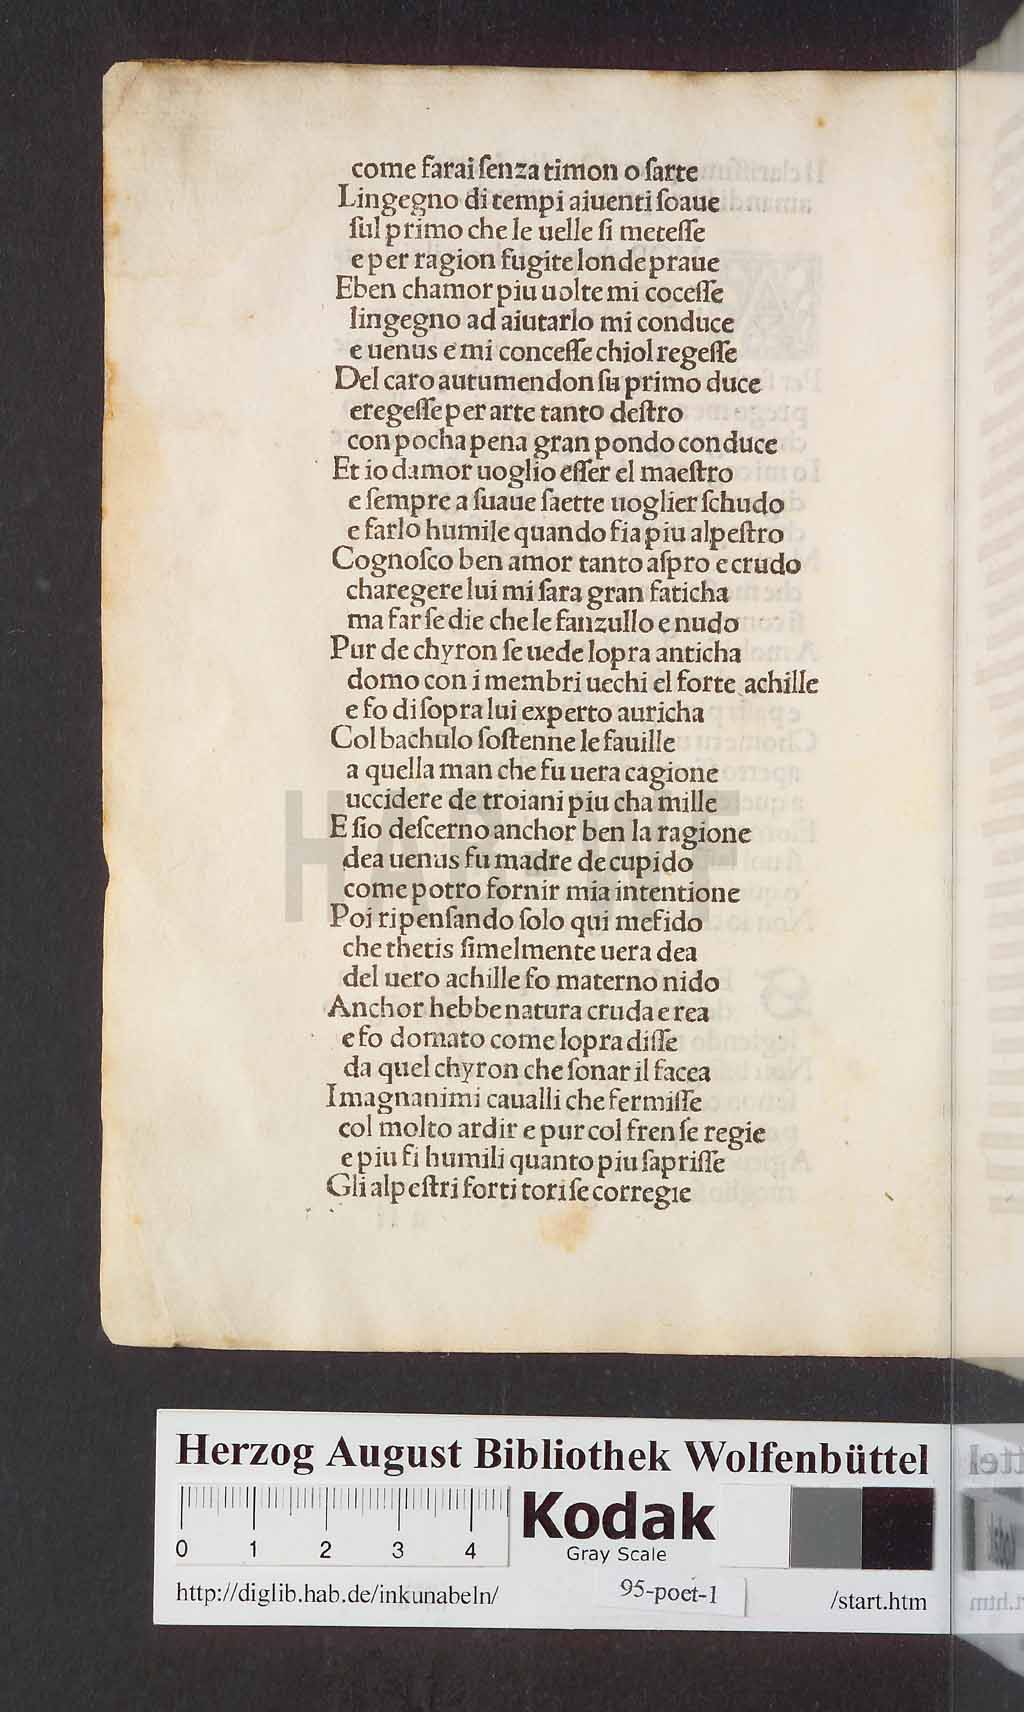 come farai ſenza timon o ſarte
Lingegno di tempi aiuenti ſoaue
ſul primo che le uelle ſi meteſſe
e per ragion fugite londe praue
Eben chamor piu uolte mi coceſſe
lingegno ad aiutarlo mi conduce
e uenus e mi conceſſe chiol regeſſe
Del caro autumendon fu primo duce
e regeſſe per arte tanto deſtro
con pocha pena gran pondo conduce
Et io damor uoglio eſſer el maeſtro
e ſempre a ſuaue ſaette uoglier ſchudo
e farlo humile quando fia piu alpeſtro
Cognoſco ben amor tanto aſpro e crudo
charegere lui mi ſara gran faticha
ma far ſe die che le fanzullo e nudo
Pur de chyron ſe uede lopra anticha
domo con i membri uechi el forte achille
e fo di ſopra lui experto auricha
Col bachulo ſoſtenne le fauille
a quella man che fu uera cagione
uccidere de troiani piu cha mille
E ſio deſcerno anchor ben la ragione
dea uenus fu madre de cupido
come potro fornir mia intentione
Poi ripenſando ſolo qui mefido
che thetis ſimelmente uera dea
del uero achille fo materno nido
Anchor hebbe natura cruda e rea
e fo domato come lopra diſſe
da quel chyron che ſonar il facea
Imagnanimi caualli che fermiſſe
col molto ardir e pur col fren ſe regie
e piu fi humili quanto piu ſapriſſe
Gli alpeſtri forti tori ſe corregie
HAB-WF
Herzog August Bibliothek Wolfenbüttel
0 1 2 3 4
Kodak
Gray Scale
http://diglib.hab.de/inkunabeln/ 95-poet-1 /start.htm